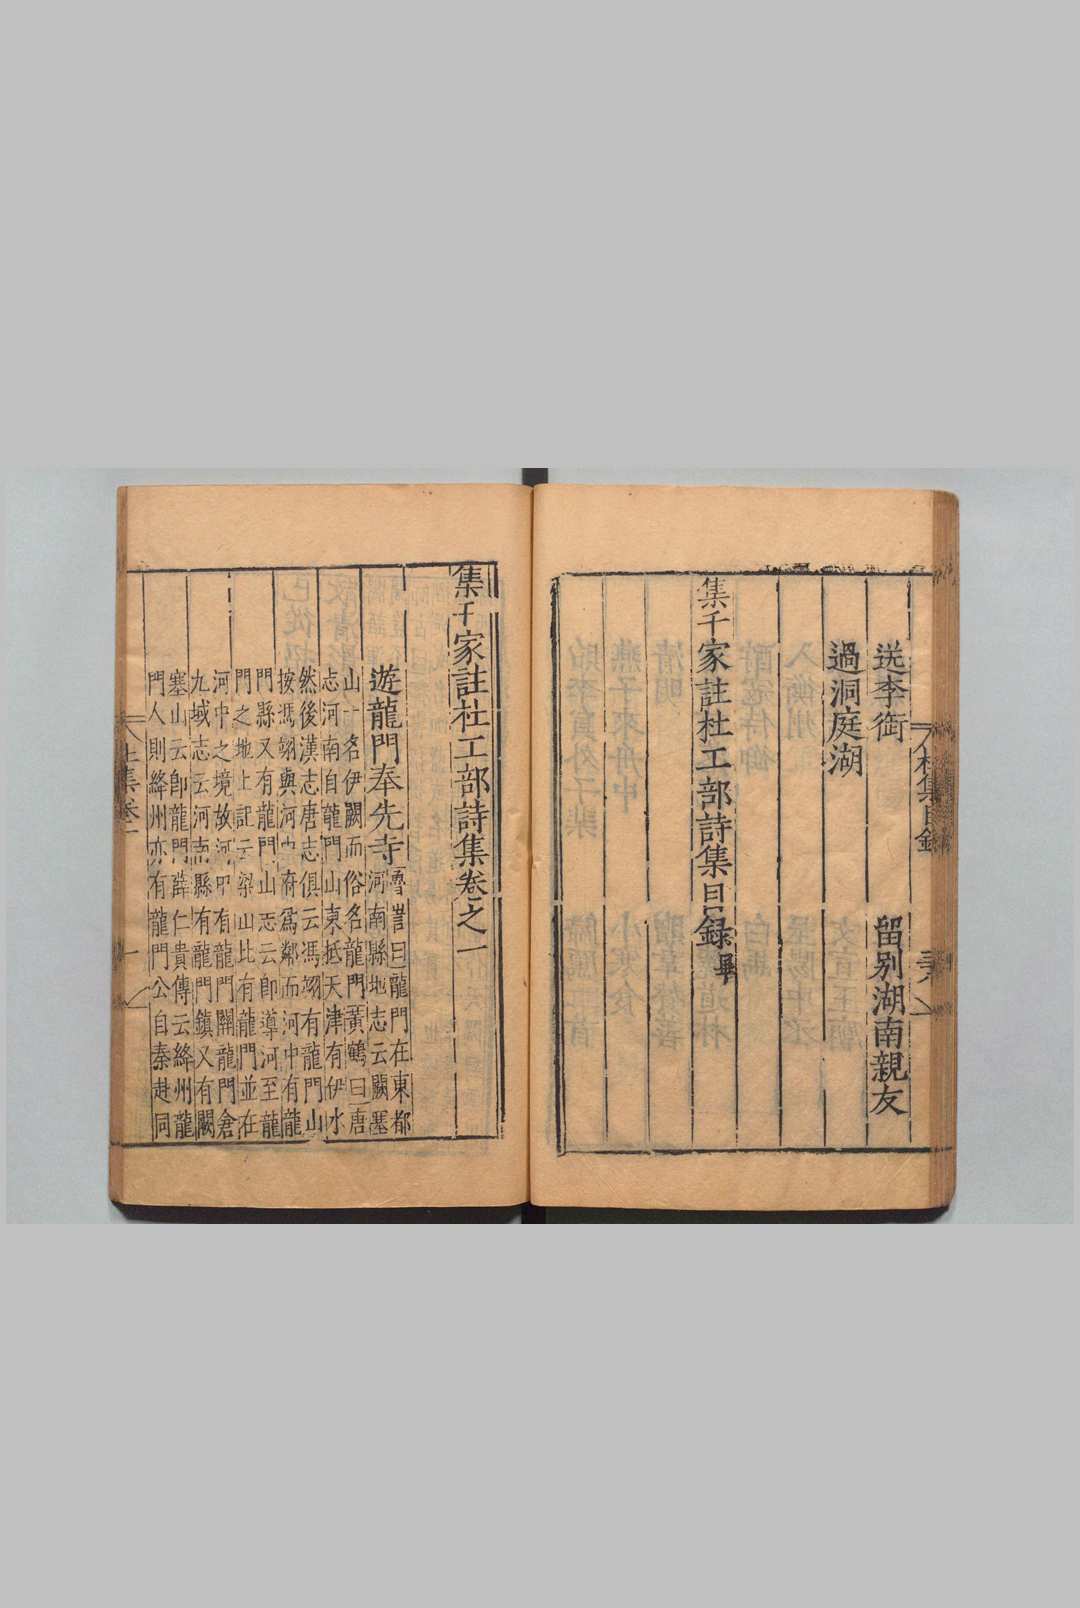 送李銜
留別湖南親友
過洞庭湖
集千家註杜工部詩集目錄畢
杜集目錄
三十八
集千家註杜工部詩集卷之一
遊龍門奉先寺
魯訔曰龍門在東都
河南縣地志云闕塞
山一名伊闕而俗名龍門黃鶴曰唐
志河南自龍門山東抵天津有伊水
然後漢志唐志俱云馮翊有龍門山
按馮翊與河中府為鄰而河中有龍
門縣又有龍門山志云即導河至龍
門之地上記云梁山北有龍門並在
河中之境故河中有龍門關龍門倉
九域志云河南縣有龍門鎮又有闕
塞山云即龍門薛仁貴傳云絳州龍
門人則絳州亦有龍門公自秦赴同
杜集卷一
一